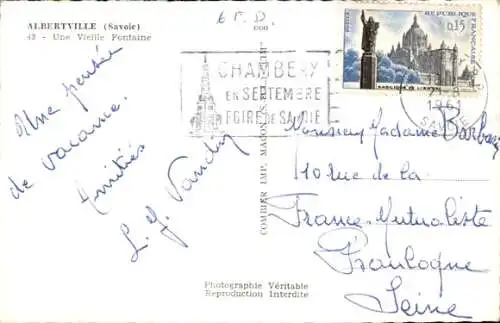 ALBERTVILLE (Savoie)
42 - Une Vieille Fontaine
Une pensée
de vacance.
Amitiés
L. Y. Vandin
COMBIER IMP. MACON
Photographie Véritable
Reproduction Interdite
CHAMBERY
EN SEPTEMBRE
FOIRE DE SAVOIE
REPUBLIQUE FRANÇAISE
0,15
POSTES
BASILIQUE DE LISIEUX
1961
Monsieur Madame Barbari
10 rue de la
France-Mutualiste
Boulogne
Seine